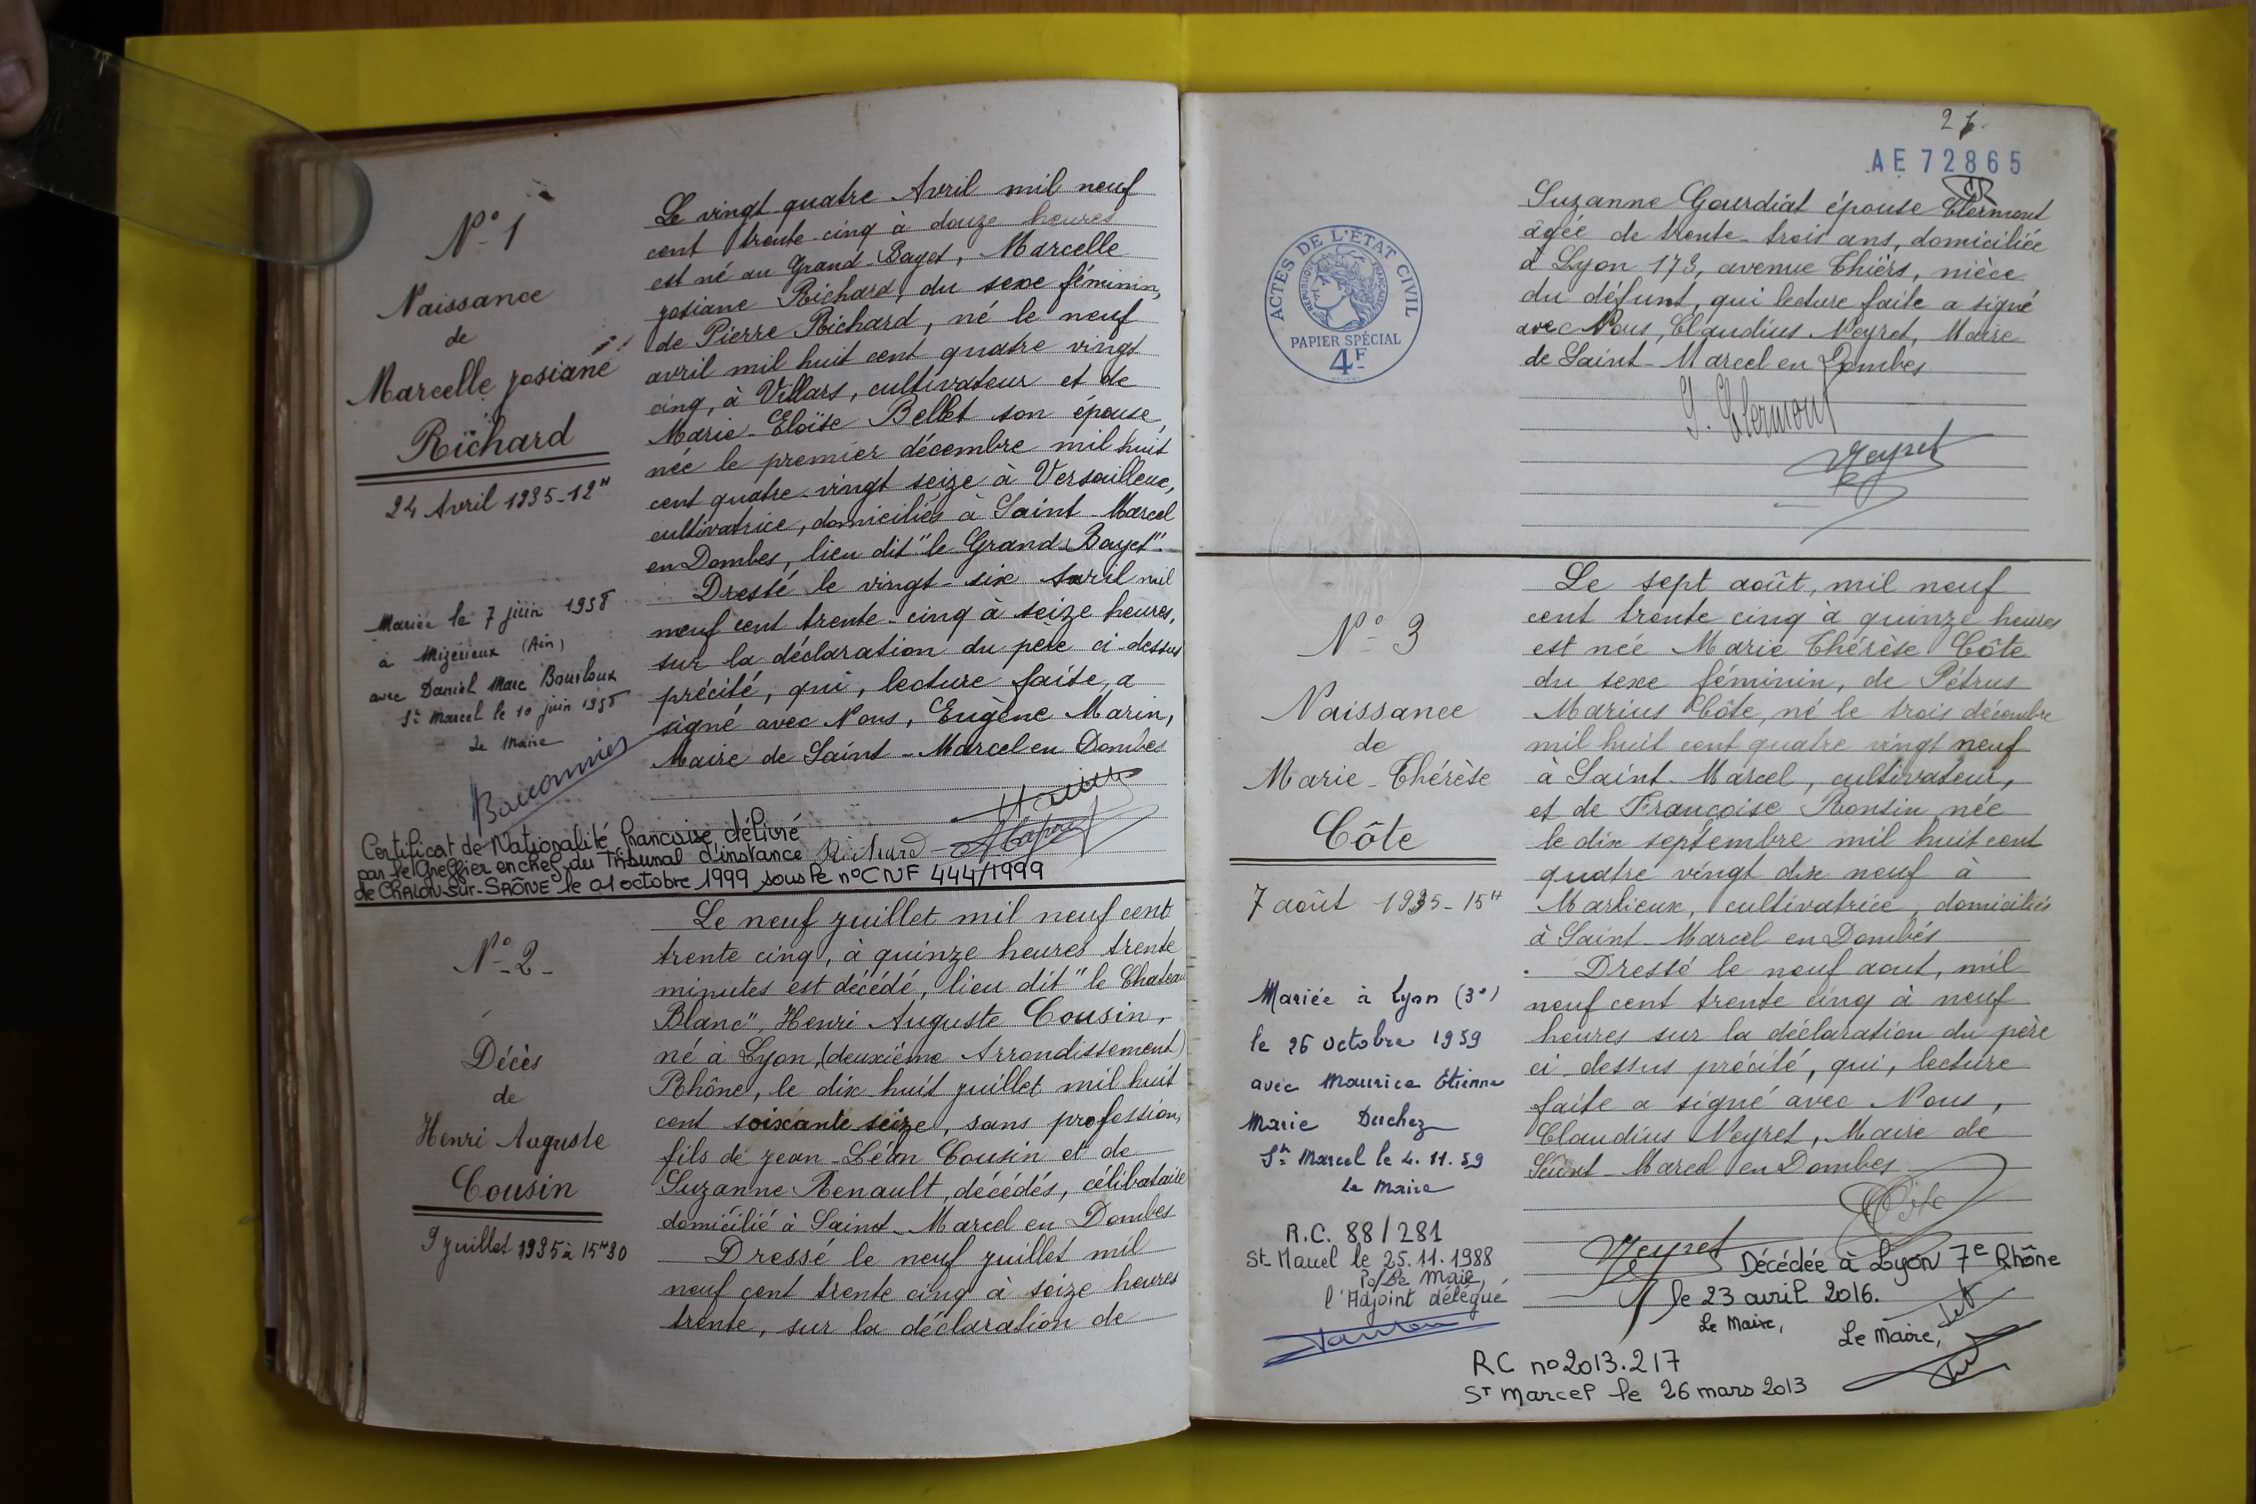 N° 1
Naissance
de
Marcelle Josiane
Richard
24 Avril 1935 - 12H
Mariée le 7 juin 1958
à Mizérieux (Ain)
avec Daniel Marc
St Marcel le 10 juin 1958
Le Maire
Le vingt quatre Avril mil neuf
cent trente cinq à douze heures
est né au Grand-Bayet, Marcelle
Josiane Richard, du sexe féminin,
de Pierre Richard, né le neuf
avril mil huit cent quatre vingt
cinq, à Villars, cultivateur et de
Marie-Eloïse Bellet son épouse,
née le premier décembre mil huit
cent quatre-vingt seize à Versailleux,
cultivatrice, domiciliés à Saint-Marcel
en Dombes, lieu dit "le Grand Bayet".
Dressé le vingt-six Avril mil
neuf cent trente-cinq à seize heures,
sur la déclaration du père ci-dessus
précité, qui, lecture faite, a
signé avec Nous, Eugène Marin,
Maire de Saint-Marcel en Dombes
Richard
Certificat de Nationalité française délivré
par le Greffier en chef du Tribunal d'instance
de CHALON-sur-SAÔNE le 01 octobre 1999 sous le n° CNF 444/1999
N° 2
Décès
de
Henri Auguste
Cousin
9 juillet 1935 à 15H30
Le neuf juillet mil neuf cent
trente cinq, à quinze heures trente
minutes est décédé, lieu dit "le Chateau
Blanc", Henri Auguste Cousin,
né à Lyon, (deuxième Arrondissement)
Rhône, le dix huit juillet mil huit
cent soixante seize, sans profession,
fils de Jean-Léon Cousin et de
Suzanne Renault, décédés, célibataire
domicilié à Saint-Marcel en Dombes
Dressé le neuf juillet mil
neuf cent trente cinq à seize heures
trente, sur la déclaration de
AE 72865
ACTES DE L'ÉTAT CIVIL
RÉPUBLIQUE FRANÇAISE
PAPIER SPÉCIAL
4F
Suzanne Gourdiat épouse Clermont
agée de trente-trois ans, domiciliée
à Lyon 173, avenue Thiers, nièce
du défunt, qui lecture faite a signé
avec Nous, Claudius Neyret, Maire
de Saint-Marcel en Dombes
S. Clermont
Neyret
N° 3
Naissance
de
Marie-Thérèse
Côte
7 août 1935 - 15H
Mariée à Lyon (3e)
le 26 octobre 1959
avec Maurice Etienne
Marie Duchez
St Marcel le 4.11.59
Le Maire
R.C. 88/281
St Marcel le 25.11.1988
Po/Le Maire,
l'Adjoint délégué
Le sept août, mil neuf
cent trente cinq à quinze heures
est née Marie Thérèse Côte
du sexe féminin, de Pétrus
Marius Côte, né le trois décembre
mil huit cent quatre vingt neuf
à Saint-Marcel, cultivateur,
et de Françoise Ronsin née
le dix septembre mil huit cent
quatre vingt dix neuf à
Marlieux, cultivatrice, domiciliés
à Saint-Marcel en Dombes
Dressé le neuf aout, mil
neuf cent trente cinq à neuf
heures sur la déclaration du père
ci-dessus précité, qui, lecture
faite a signé avec Nous,
Claudius Neyret, Maire de
Saint-Marcel en Dombes
Côte
Neyret
Décédée à Lyon 7e Rhône
le 23 avril 2016.
Le Maire,
Le Maire,
RC n° 2013.217
St Marcel le 26 mars 2013